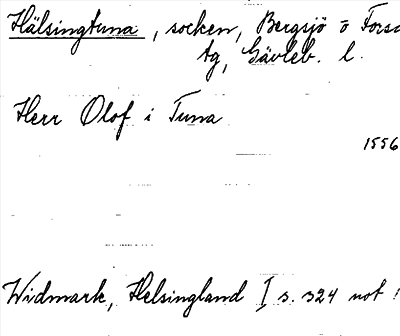 Hälsingtuna, socken, Bergsjö o Forsa
tg, Gävleb. l.
Herr Olof i Tuna
1556
Widmark, Helsingland I s. 324 not